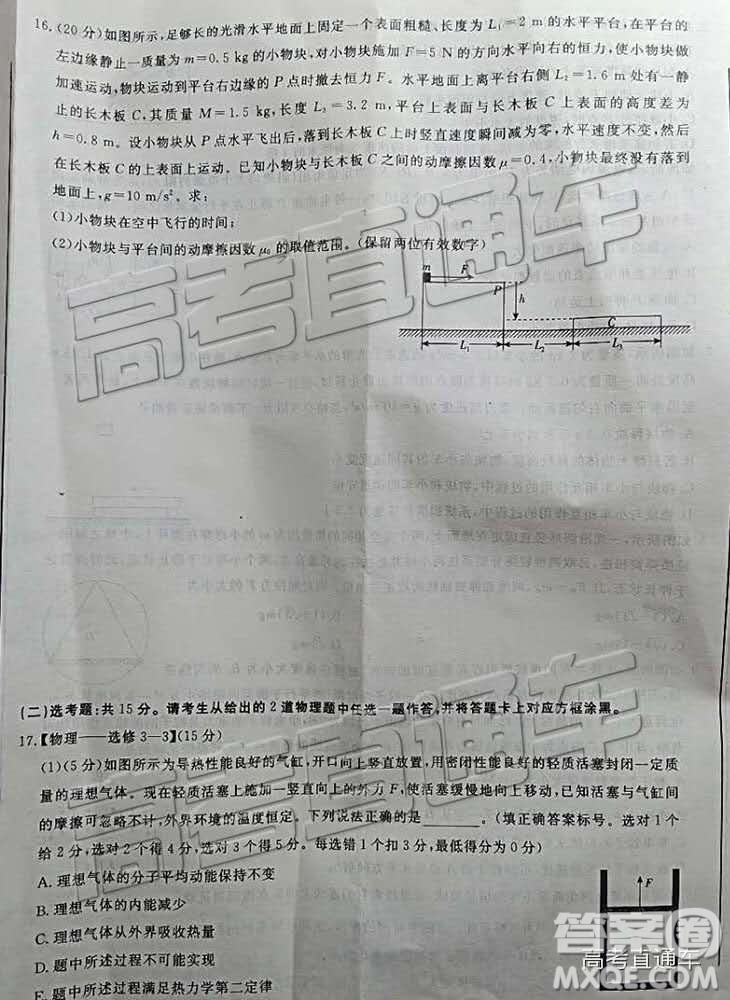 16.(20分)如图所示,足够长的光滑水平地面上固定一个表面粗糙、长度为L₁=2 m的水平平台,在平台的
左边缘静止一质量为m=0.5 kg的小物块,对小物块施加F=5 N的方向水平向右的恒力,使小物块做
加速运动,物块运动到平台右边缘的P点时撤去恒力F。水平地面上离平台右侧L₂=1.6 m处有一静
止的长木板C,其质量M=1.5 kg,长度L₃=3.2 m,平台上表面与长木板C上表面的高度差为
h=0.8 m。设小物块从P点水平飞出后,落到长木板C上时竖直速度瞬间减为零,水平速度不变,然后
在长木板C的上表面上运动。已知小物块与长木板C之间的动摩擦因数μ=0.4,小物块最终没有落到
地面上,g=10 m/s²。求:
(1)小物块在空中飞行的时间;
(2)小物块与平台间的动摩擦因数μ₀的取值范围。(保留两位有效数字)
m F
P h
C
L₁ L₂ L₃
高考直通车
(二)选考题:共15分。请考生从给出的2道物理题中任选一题作答,并将答题卡上对应方框涂黑。
17.【物理——选修3—3】(15分)
(1)(5分)如图所示为导热性能良好的气缸,开口向上竖直放置,用密闭性能良好的轻质活塞封闭一定质
量的理想气体。现在轻质活塞上施加一竖直向上的外力F,使活塞缓慢地向上移动,已知活塞与气缸间
的摩擦可忽略不计,外界环境的温度恒定。下列说法正确的是______。(填正确答案标号。选对1个
给2分,选对2个得4分,选对3个得5分。每选错1个扣3分,最低得分为0分)
A.理想气体的分子平均动能保持不变
B.理想气体的内能减少
C.理想气体从外界吸收热量
D.题中所述过程不可能实现
E.题中所述过程满足热力学第二定律
F
高考直通车
答案圈
高考直通车
MXQE.COM